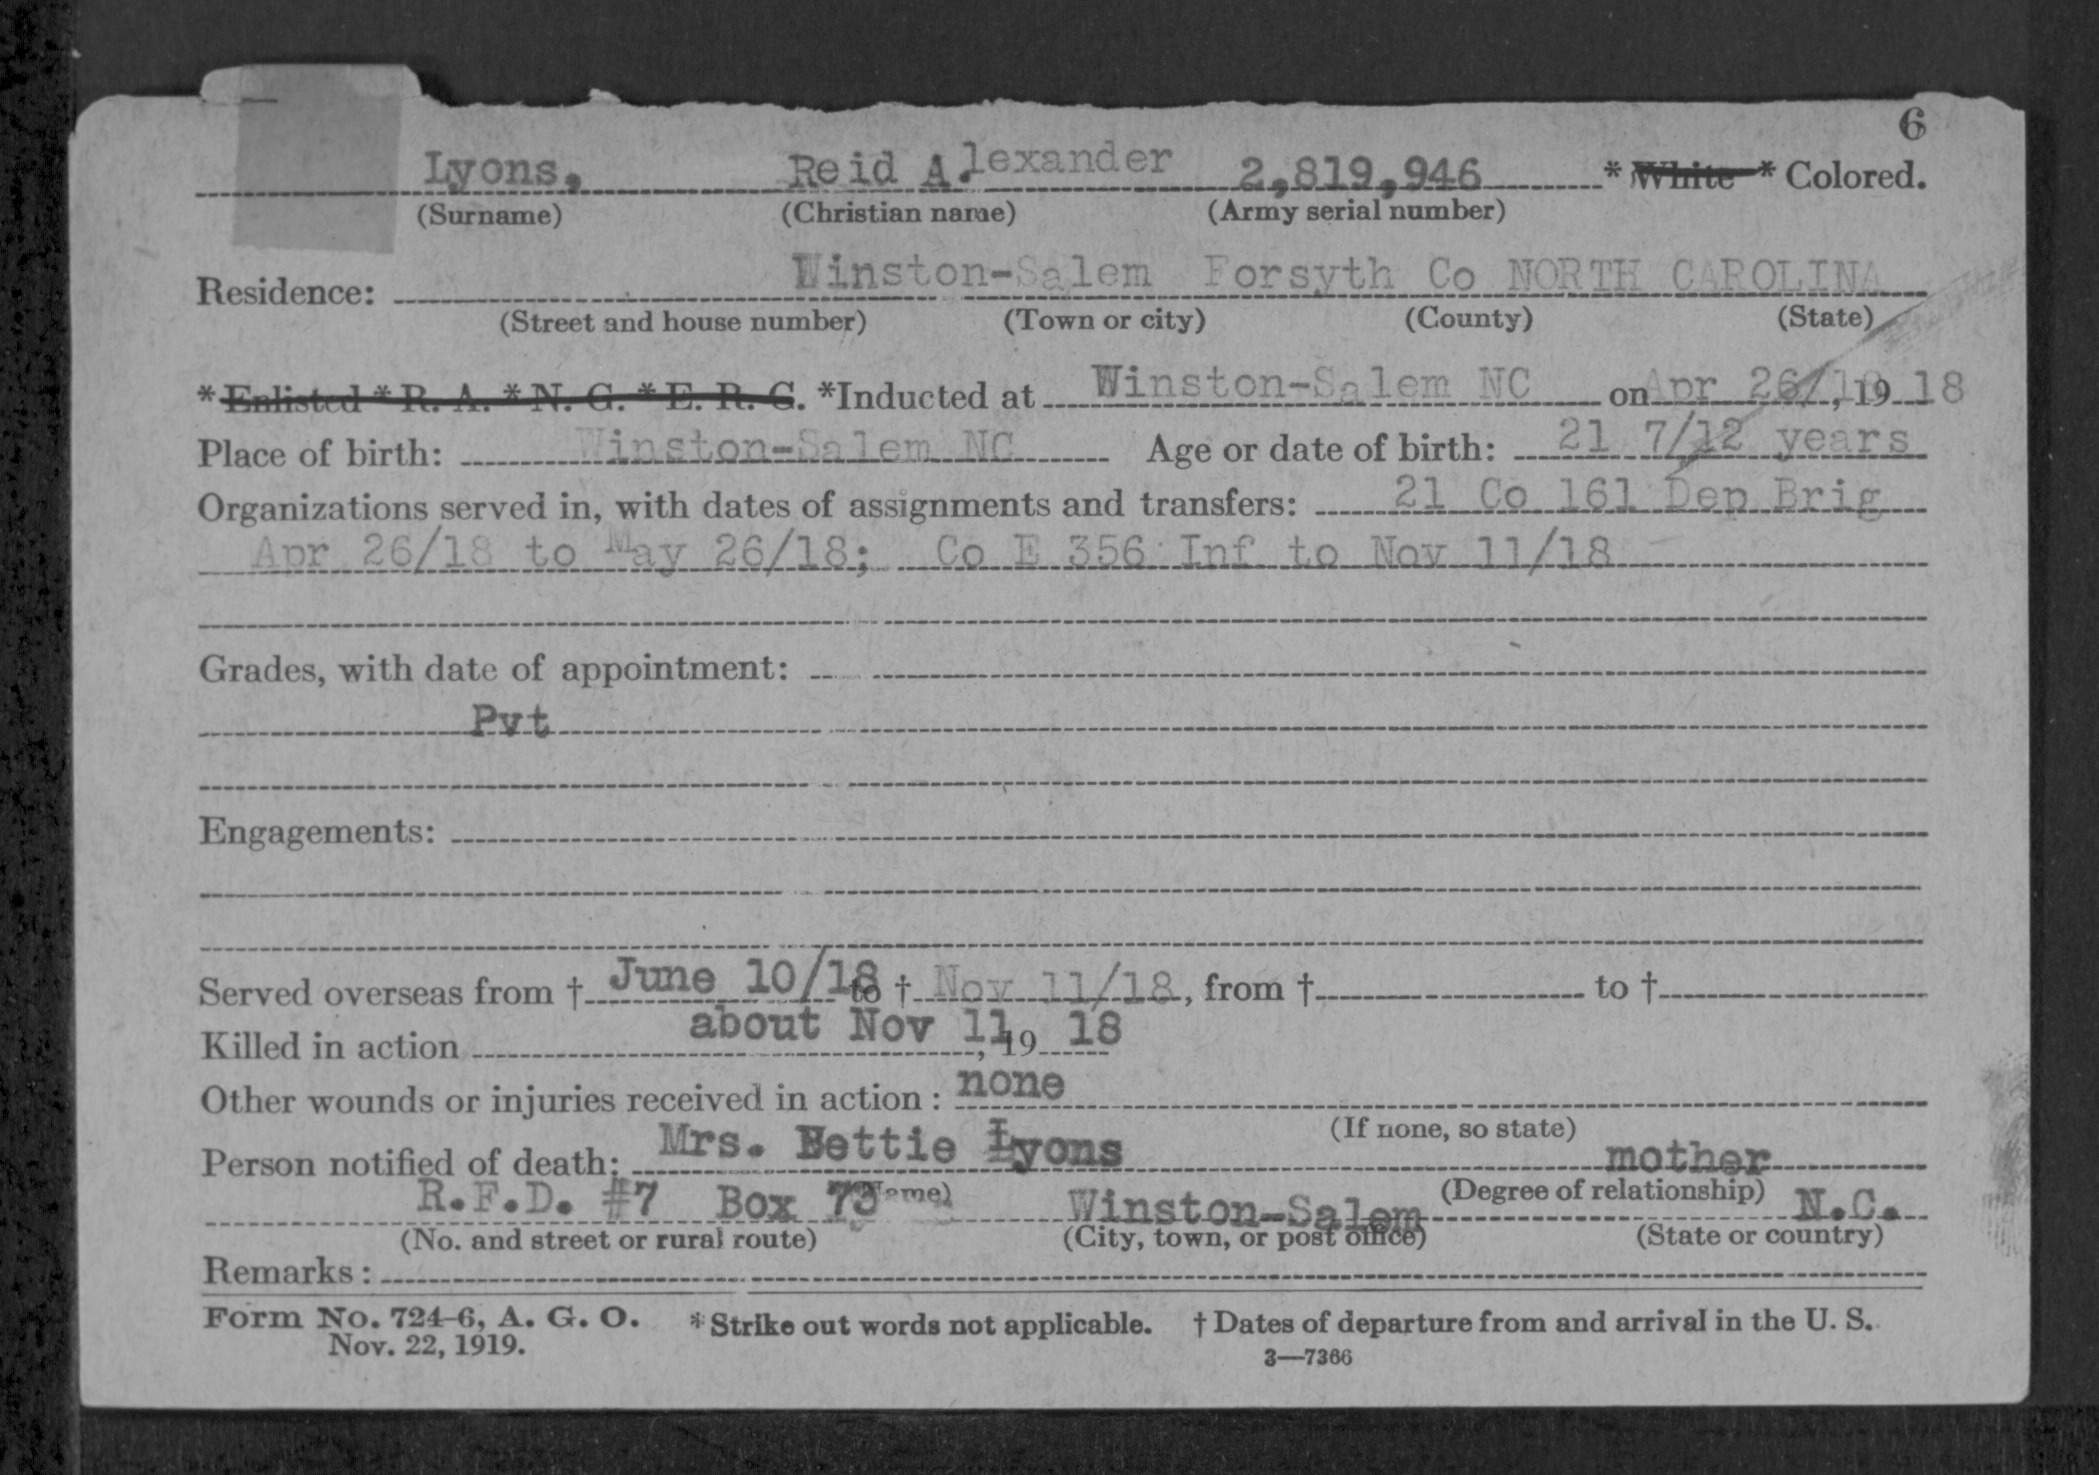 6
Lyons, Reid A.lexander 2,819,946 * White * Colored.
(Surname) (Christian name) (Army serial number)
Residence: Winston-Salem Forsyth Co NORTH CAROLINA
(Street and house number) (Town or city) (County) (State)
* Enlisted * R. A. * N. G. * E. R. C. *Inducted at Winston-Salem NC on Apr 26/18, 19 18
Place of birth: Winston-Salem NC Age or date of birth: 21 7/12 years
Organizations served in, with dates of assignments and transfers: 21 Co 161 Dep Brig
Apr 26/18 to May 26/18; Co E 356 Inf to Nov 11/18
Grades, with date of appointment:
Pvt
Engagements:
Served overseas from † June 10/18 to † Nov 11/18, from † to †
Killed in action about Nov 11, 19 18
Other wounds or injuries received in action : none
(If none, so state)
Person notified of death: Mrs. Bettie Lyons mother
(Name) (Degree of relationship)
R.F.D. #7 Box 73 Winston-Salem N.C.
(No. and street or rural route) (City, town, or post office) (State or country)
Remarks :
Form No. 724-6, A. G. O. * Strike out words not applicable. † Dates of departure from and arrival in the U. S.
Nov. 22, 1919. 3—7366